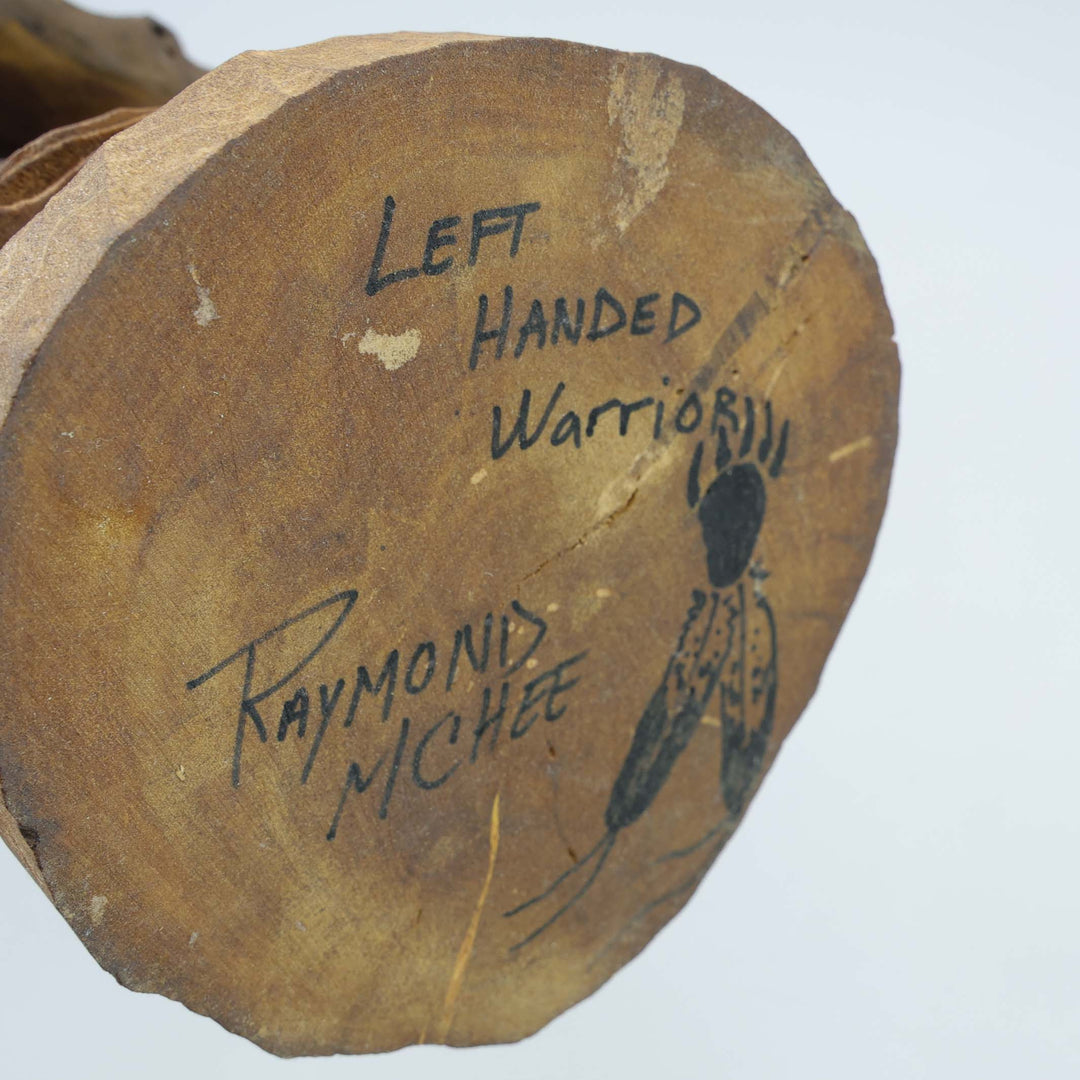 LEFT
HANDED
WarriOR
RAYMOND
MCHEE